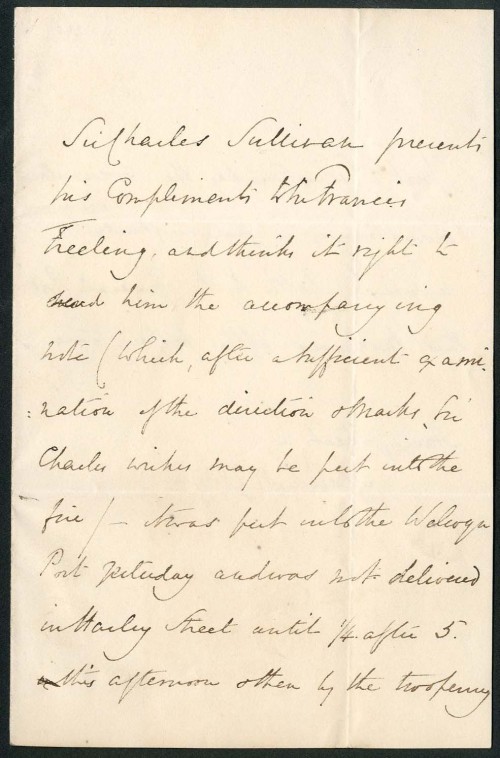 Sir Charles Sullivan presents
his Compliments to Sir Francis
Freeling, and thinks it right to
send him the accompanying
note (which, after a sufficient exami-
:nation of the direction & Marks, Sir
Charles wishes may be put into the
fire) – it was put into the Welwyn
Post yesterday and was not delivered
in Harley Street until ¼ after 5.
this afternoon & then by the twopenny